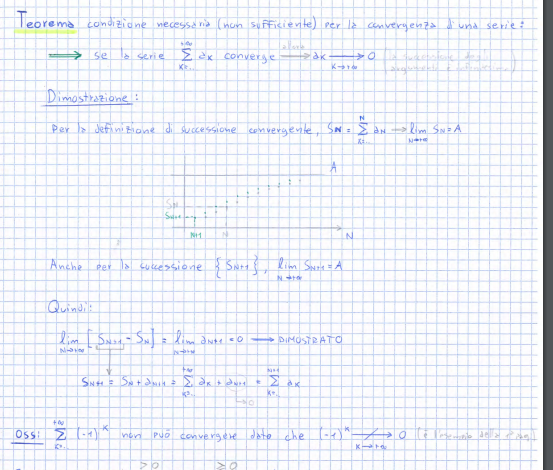 Teorema condizione necessaria (non sufficiente) per la convergenza di una serie:
⟹ se la serie +∞ Σ K=.. aK converge allora ⟶ aK ⟶ 0 K→+∞ (la successione degli
argomenti è infinitesima)
Dimostrazione:
Per la definizione di successione convergente, SN = N Σ K=.. aN ⟶ lim N→+∞ SN = A
A
SN
SN+1
N+1 N N
Anche per la successione {SN+1}, lim N→+∞ SN+1 = A
Quindi:
lim N→+∞ [SN+1 - SN] = lim N→+∞ aN+1 = 0 ⟶ DIMOSTRATO
SN+1 = SN + aN+1 = +∞ Σ K=.. aK + aN+1 = N+1 Σ K=.. aK
→0
Oss: +∞ Σ K=.. (-1)^K non può convergere dato che (-1)^K ⟶ 0 K→+∞
>0 ≥0